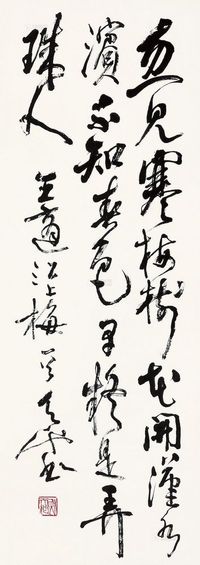 忽見寒梅樹花開漢水
濱不知春色早疑是弄
珠人
王適江上梅